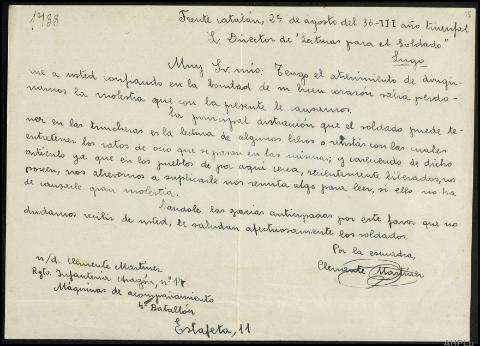 1933
15
Frente catalán, 25 de agosto del 38-III año triunfal
S. Director de "Lecturas para el Soldado"
Lugo
Muy Sr. mío: Tengo el atrevimiento de dirigir-
me a usted confiando en la bondad de su buen corazón sabrá perdo-
narnos la molestia que con la presente le causamos.
La principal distracción que el soldado puede te-
ner en las trincheras es la lectura de algunos libros o revistas con las cuales
entretener los ratos de ocio que se pasan en las mismas; y careciendo de dicho
artículo ya que en los pueblos de por aquí cerca, recientemente liberados, no
poseen, nos atrevemos a suplicarle nos remita algo para leer, si ello no ha
de causarle gran molestia.
Dándole las gracias anticipadas por este favor que no
dudamos recibir de usted, le saludan afectuosamente los soldados.
Por la escuadra,
Clemente Martínez
n/d. Clemente Martínez
Rgto. Infantería Aragón, nº 17
Máquinas de acompañamiento
4º Batallón
Estafeta, 11